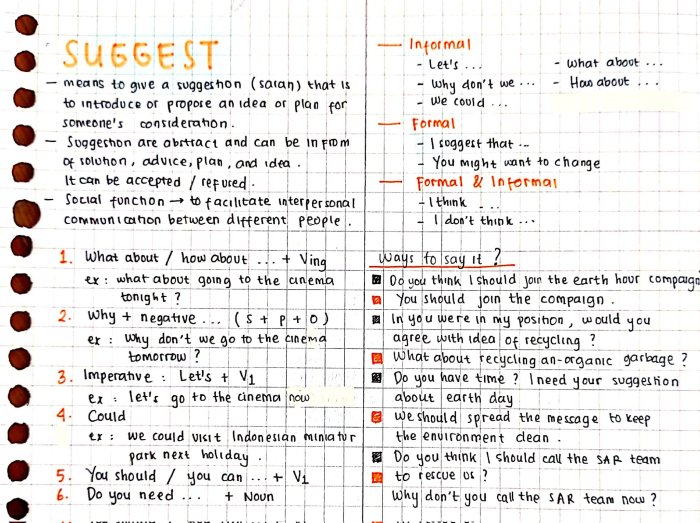 SUGGEST
– means to give a suggestion (saran) that is
to introduce or propose an idea or plan for
someone's consideration.
– Suggestion are abstract and can be in from
of solution, advice, plan, and idea.
It can be accepted / refused.
– Social function → to facilitate interpersonal
communication between different people.
1. What about / how about ... + Ving
ex : what about going to the cinema
tonight ?
2. Why + negative ... (S + P + O)
ex : Why don't we go to the cinema
tomorrow ?
3. Imperative : Let's + V1
ex : let's go to the cinema now
4. Could
ex : we could visit Indonesian miniatur
park next holiday.
5. You should / you can ... + V1
6. Do you need ... + Noun
— Informal
- Let's ... - What about ...
- Why don't we ... - How about ...
- We could ...
— Formal
- I suggest that ...
- You might want to change
— Formal & Informal
- I think ...
- I don't think ...
Ways to say it ?
Do you think I should join the earth hour compaign
You should join the compaign.
In you were in my position, would you
agree with idea of recycling ?
What about recycling an-organic garbage ?
Do you have time ? I need your suggestion
about earth day
We should spread the message to keep
the environment clean.
Do you think I should call the SAR team
to rescue us ?
Why don't you call the SAR team now ?